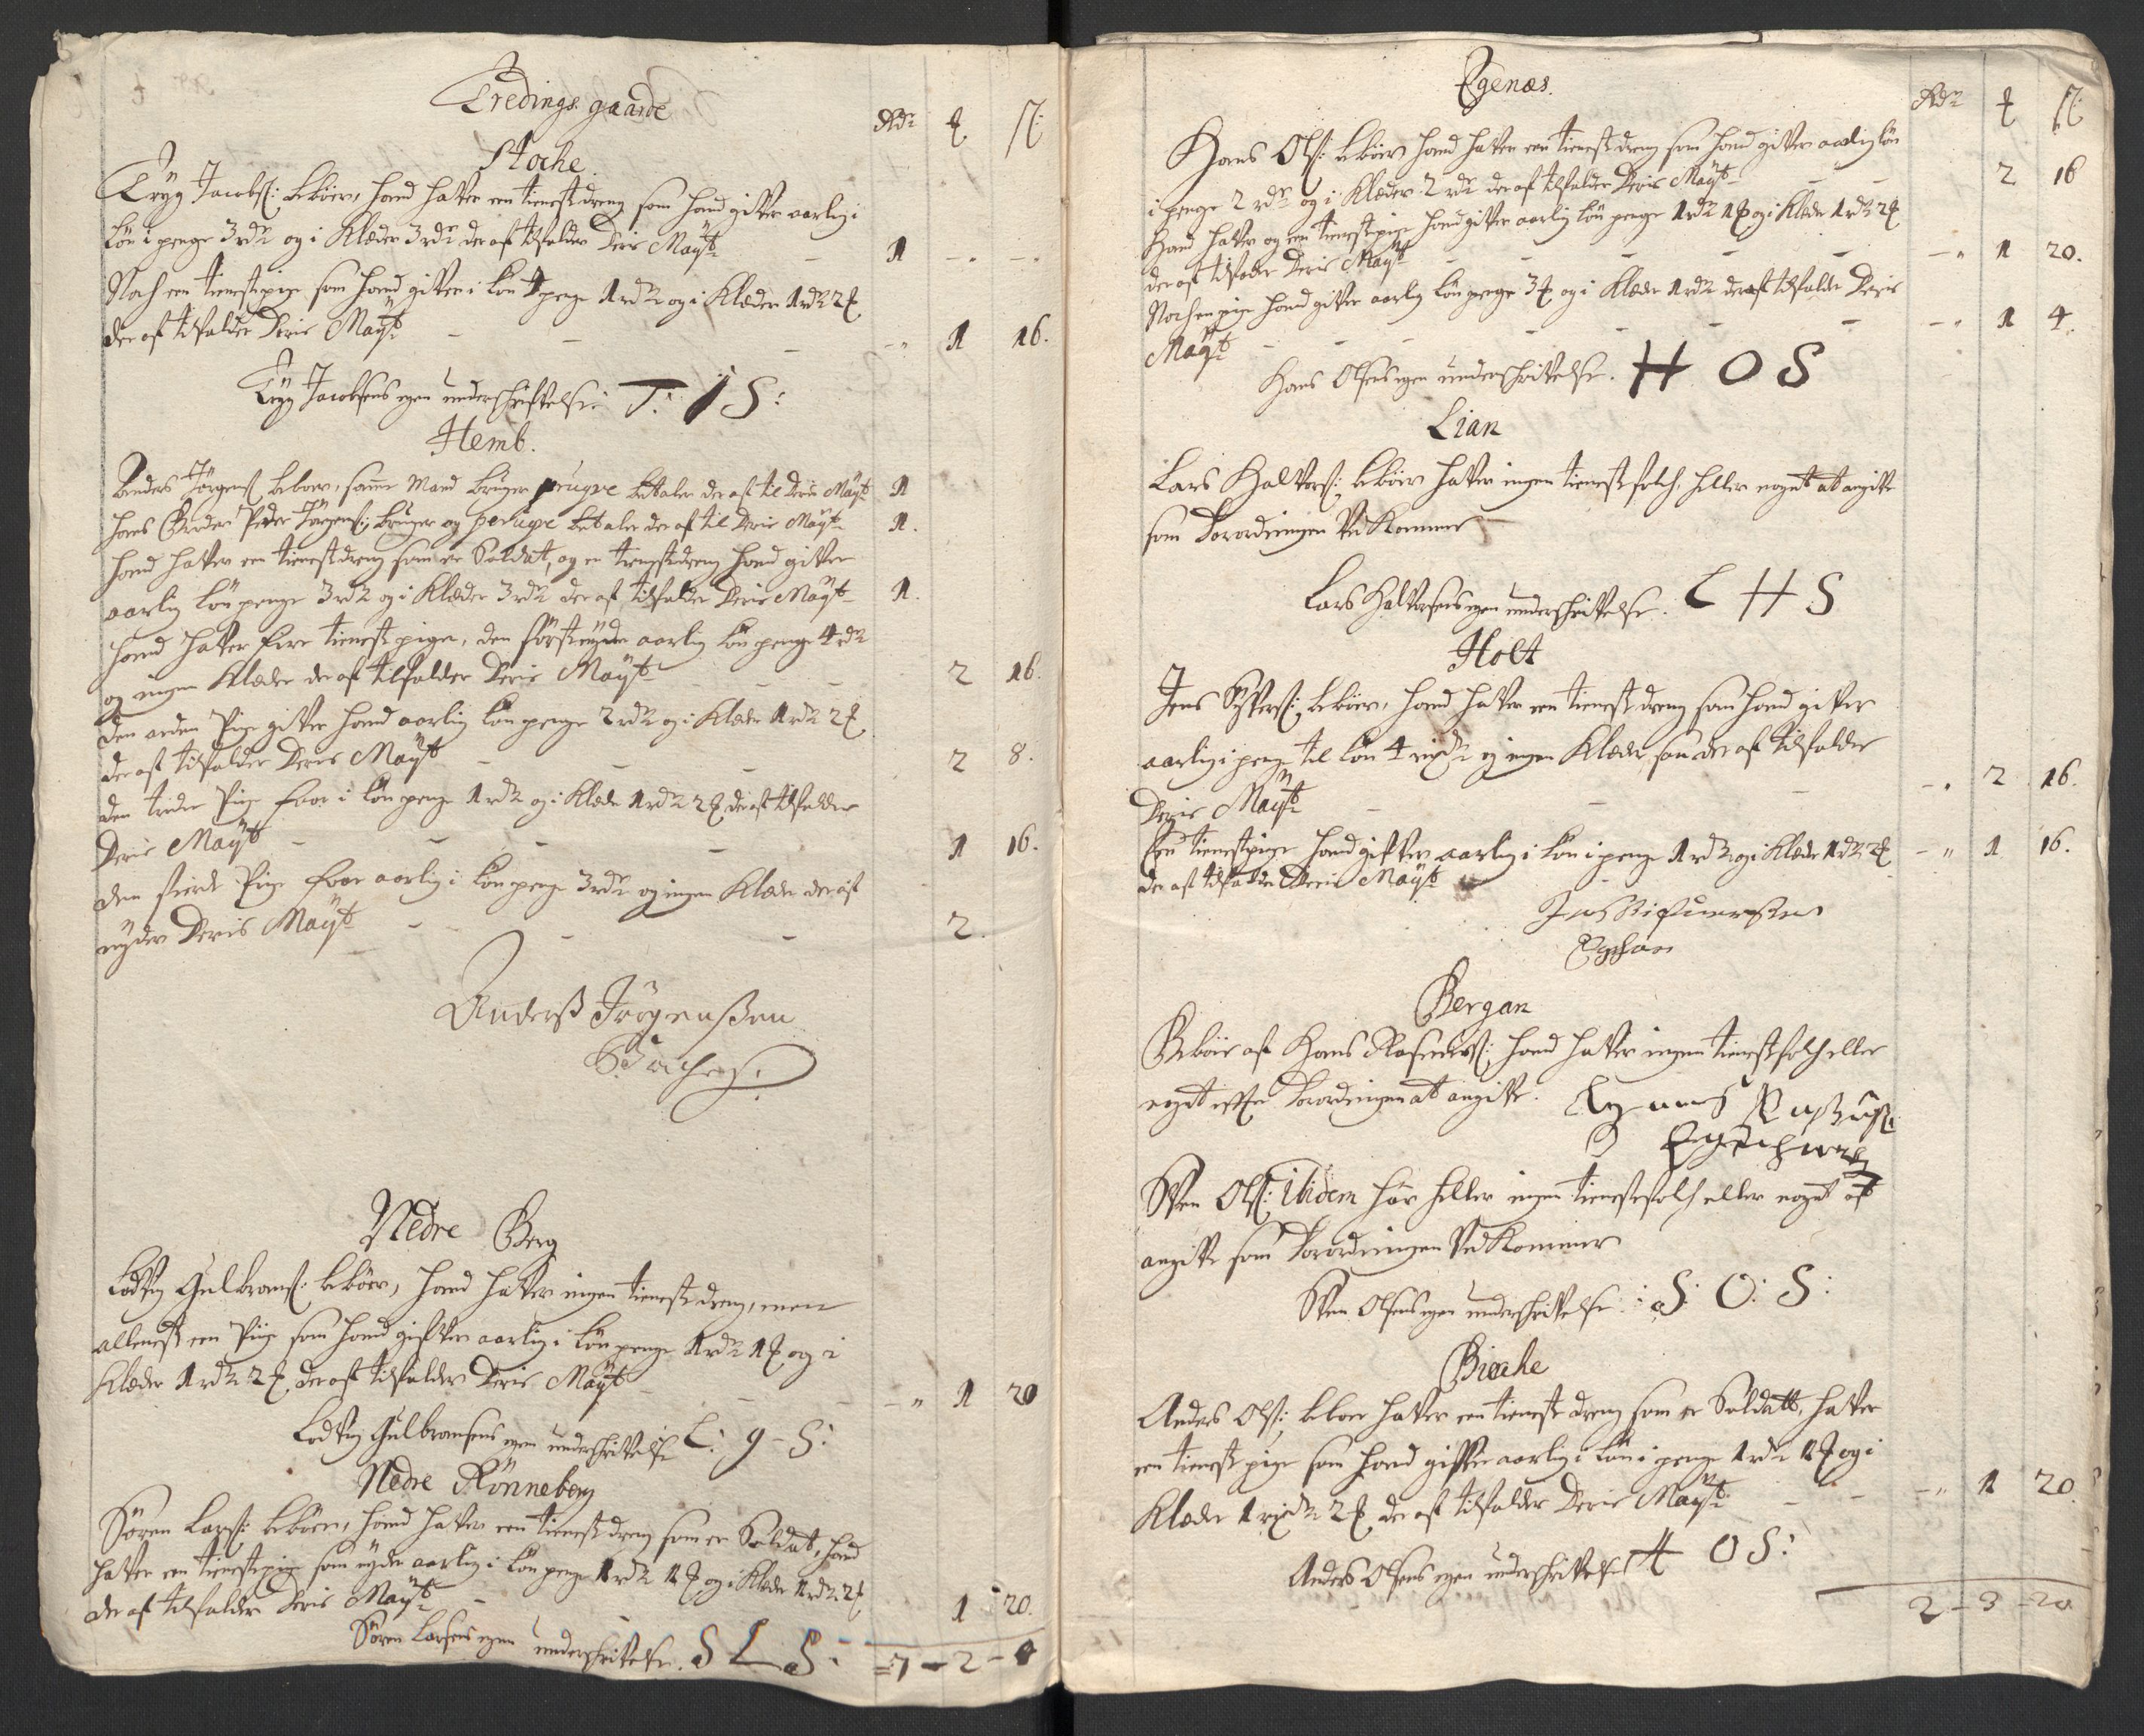 Tredings gaarde
Rdr ƶ ß:
Stoche
Tryg Jacobs: beboer, hand hafver een tienestdreng som hand gifver aarlig i
Lön i penge 3 rdr og i Klæder 3 rdr der af tilfalder Deris Mayt - 1 - -
Noch een tienestpige som hand gifver i Lön penge 1 rdr og i Klæder 1 rdr 2 ƶ
der af tilfalder Deris Mayt - - - 1 16.
Tryg Jacobsens egen underschriftelse: T: I S:
Hemb.
Anders Jörgens: beboer, samme Mand bruger peruqve betaler der af til Deris Mayt 1
Hans Broder Peder Jörgens: bruger og peruqve betaler der af til Deris Mayt 1.
hand hafver een tienestdreng som er Soldat, og en tienestdreng hand gifver
aarlig Lön penge 3 rdr og i Klæder 3 rdr der af tilfalder Deris Mayt 1.
hand hafver fire tienestpiger, den förste nyder aarlig Lön penge 4 rdr
og ingen Klæder der af tilfalder Deris Mayt - - - 2 16.
den anden Pige gifver hand aarlig Lön penge 2 rdr og i Klæder 1 rdr 2 ƶ
der af tilfalder Deris Mayt - - - 2 8.
den tredie Pige faar i Lön penge 1 rdr og i Klæder 1 rdr 2 ƶ, der af tilfalder
Deris Mayt - - - - 1 16.
den fierde Pige faar aarlig i Lön penge 3 rdr og ingen Klæder der af
nyder Deris Mayt - - - 2.
Anderß Jörgenßen
Nedre Berg
Lodvig Gulbrans: beboer, hand hafver ingen tienestdreng, men
alleneste een Pige som hand gifver aarlig i Lön penge 1 rdr 1 ƶ og i
Klæder 1 rdr 2 ƶ, der af tilfalder Deris Mayt - - - 1 20
Lodvig Gulbransens egen underschriftelse L: G - S:
Nedre Rönneberg
Sören Lars: beboer, hand hafver een tienestdreng som er Soldat, hand
hafver een tienestepige som nyder aarlig i Lön penge 1 rdr 1 ƶ og i Klæder 1 rdr 2 ƶ
der af tilfalder Deris Mayt - - 1 20.
Sören Larsens egen underschriftelse. S L S:
7 - 2 - 0
Egenæs.
Rdr ƶ ß:
Hans Ols: beboer hand hafver een tienestdreng som hand gifver aarlig lön
i penge 2 rdr og i Klæder 2 rdr der af tilfalder Deris Mayt - - 2 16
Hand hafver og een tienestepige hand gifver aarlig Lön penge 1 rdr 1 ƶ, og i Klæder 1 rdr 2 ƶ
der af tilfalder Deris Mayt - - - - 1 20.
Noch en pige hand gifver aarlig Lön penge 3 ƶ og i Klæder 1 rdr der af tilfalder Deris
Mayt - - - - - 1 4.
Hans Olsens egen underschriftelse. H O S
Lian
Lars Halvors: beboer hafver ingen tienestfolch, heller noget at angifve
som Forordningen Ved Kommer
Lars Halvorsens egen underschriftelse. L H S
Holt
Jens Syvers: beboer, hand hafver een tienestdreng som hand gifver
aarlig i penge til Lön 4 rixdr og ingen Klæder, som der af tilfalder
Deris Mayt - - - 2 16.
Een tienestpige hand gifver aarlig i Lön i penge 1 rdr og i Klæder 1 rdr 2 ƶ - 1 16.
der af tilfalder Deris Mayt
Bergan
Beboer af Hans Rasmus: hand hafver ingen tienestfolch eller
noget efter Forordningen at angifve.
Sven Ols: Ibidem har heller ingen tienestefolch eller noget at
angifve som Forordningen Ved Kommer
Sven Olsens egen underschriftelse: S: O: S:
Birche
Anders Ols: beboer hafver een tieneste dreng som er Soldatt, hafver
een tienest pige som hand gifver aarlig i Lön i penge 1 rdr 1 ƶ og i
Klæder 1 rixdr 2 ƶ, der af tilfalder Deris Mayt - - - 1 20.
Anders Olsens egen underschriftelse A O S:
2 - 3 - 20